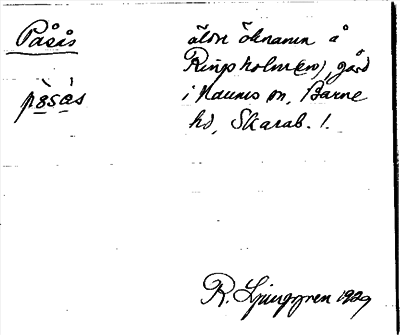 Påsås
äldre öknamn å
Ringsholm(en), gård
pòsás
i Naums sn, Barne
hd, Skarab. l.
R. Ljunggren 1929